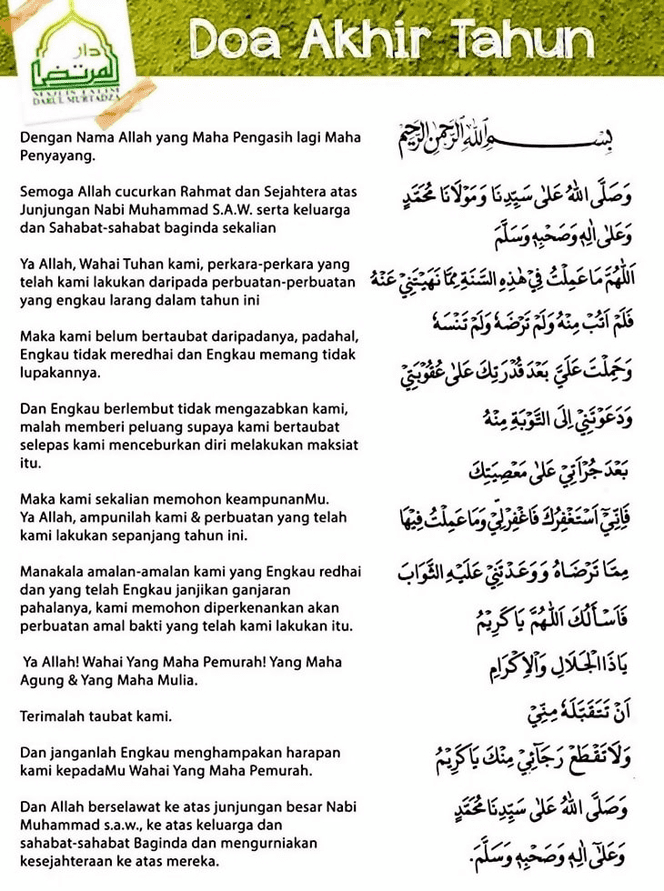 دار
المرتضى
MAJLIS TA'LIM
DARUL MURTADZA
Doa Akhir Tahun
Dengan Nama Allah yang Maha Pengasih lagi Maha
Penyayang.
Semoga Allah cucurkan Rahmat dan Sejahtera atas
Junjungan Nabi Muhammad S.A.W. serta keluarga
dan Sahabat-sahabat baginda sekalian
Ya Allah, Wahai Tuhan kami, perkara-perkara yang
telah kami lakukan daripada perbuatan-perbuatan
yang engkau larang dalam tahun ini
Maka kami belum bertaubat daripadanya, padahal,
Engkau tidak meredhai dan Engkau memang tidak
lupakannya.
Dan Engkau berlembut tidak mengazabkan kami,
malah memberi peluang supaya kami bertaubat
selepas kami menceburkan diri melakukan maksiat
itu.
Maka kami sekalian memohon keampunanMu.
Ya Allah, ampunilah kami & perbuatan yang telah
kami lakukan sepanjang tahun ini.
Manakala amalan-amalan kami yang Engkau redhai
dan yang telah Engkau janjikan ganjaran
pahalanya, kami memohon diperkenankan akan
perbuatan amal bakti yang telah kami lakukan itu.
Ya Allah! Wahai Yang Maha Pemurah! Yang Maha
Agung & Yang Maha Mulia.
Terimalah taubat kami.
Dan janganlah Engkau menghampakan harapan
kami kepadaMu Wahai Yang Maha Pemurah.
Dan Allah berselawat ke atas junjungan besar Nabi
Muhammad s.a.w., ke atas keluarga dan
sahabat-sahabat Baginda dan mengurniakan
kesejahteraan ke atas mereka.
بِسْمِ اللهِ الرَّحْمٰنِ الرَّحِيْمِ
وَصَلَّى اللهُ عَلٰى سَيِّدِنَا وَمَوْلَانَا مُحَمَّدٍ
وَعَلٰى اٰلِهٖ وَصَحْبِهٖ وَسَلَّمَ
اَللّٰهُمَّ مَا عَمِلْتُ فِيْ هٰذِهِ السَّنَةِ مِمَّا نَهَيْتَنِيْ عَنْهُ
فَلَمْ اَتُبْ مِنْهُ وَلَمْ تَرْضَهُ وَلَمْ تَنْسَهُ
وَحَمِلْتَ عَلَيَّ بَعْدَ قُدْرَتِكَ عَلٰى عُقُوْبَتِيْ
وَدَعَوْتَنِيْ اِلَى التَّوْبَةِ مِنْهُ
بَعْدَ جُرْاَتِيْ عَلٰى مَعْصِيَتِكَ
فَاِنِّيْ اَسْتَغْفِرُكَ فَاغْفِرْلِيْ وَمَا عَمِلْتُ فِيْهَا
مِمَّا تَرْضَاهُ وَوَعَدْتَنِيْ عَلَيْهِ الثَّوَابَ
فَاَسْاَلُكَ اَللّٰهُمَّ يَا كَرِيْمُ
يَا ذَا الْجَلَالِ وَالْاِكْرَامِ
اَنْ تَتَقَبَّلَهُ مِنِّيْ
وَلَا تَقْطَعْ رَجَآئِيْ مِنْكَ يَا كَرِيْمُ
وَصَلَّى اللهُ عَلٰى سَيِّدِنَا مُحَمَّدٍ
وَعَلٰى اٰلِهٖ وَصَحْبِهٖ وَسَلَّمَ.